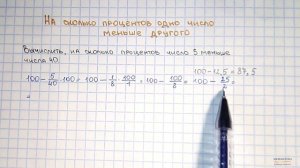 На сколько процентов одно число
меньше другого
Вычислить, на сколько процентов число 5 меньше
числа 40.
100-12,5=87,5
100- 5/40 ·100 = 100- 1/8 · 100/1 = 100- 100/8 = 100- 25/2 =
=